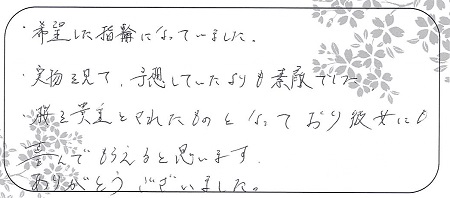 ・希望した指輪になっていました。
・実物を見て、予想していたよりも素敵でした
・桜を貴重とされたものとなっており彼女にも
喜んでもらえると思います。
ありがとうございました。